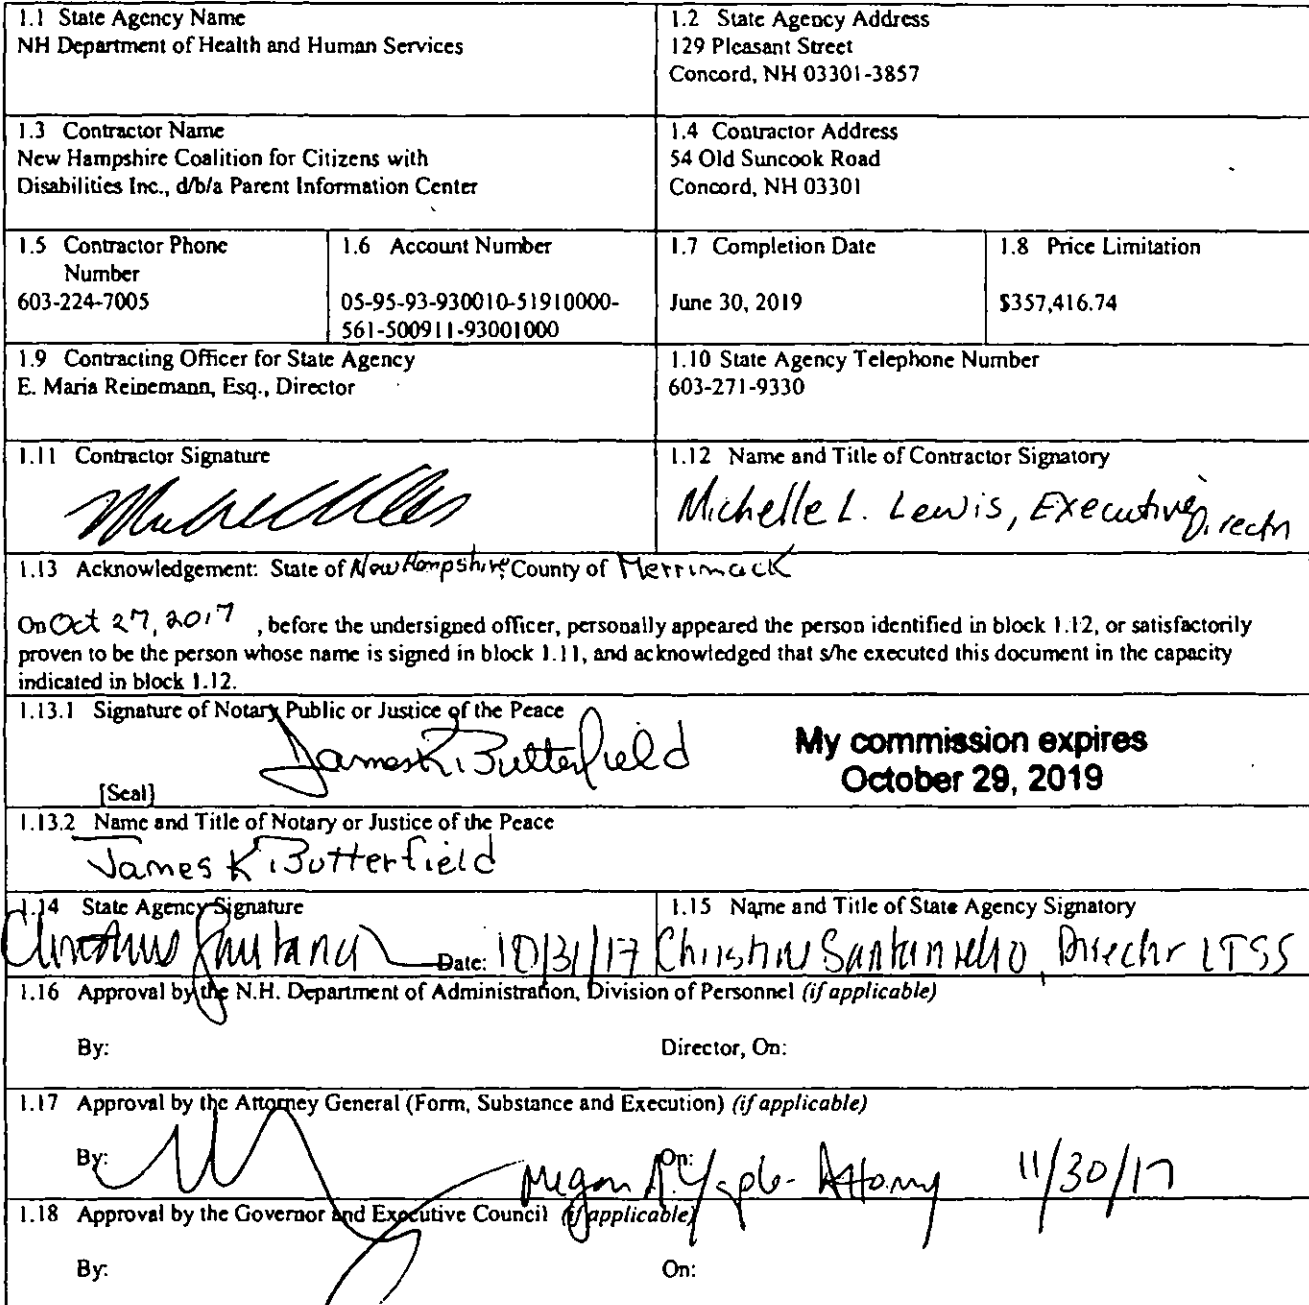 1.1 State Agency Name
NH Department of Health and Human Services
1.2 State Agency Address
129 Pleasant Street
Concord, NH 03301-3857
1.3 Contractor Name
New Hampshire Coalition for Citizens with
Disabilities Inc., d/b/a Parent Information Center
1.4 Contractor Address
54 Old Suncook Road
Concord, NH 03301
1.5 Contractor Phone
Number
603-224-7005
1.6 Account Number
05-95-93-930010-51910000-
561-500911-93001000
1.7 Completion Date
June 30, 2019
1.8 Price Limitation
$357,416.74
1.9 Contracting Officer for State Agency
E. Maria Reinemann, Esq., Director
1.10 State Agency Telephone Number
603-271-9330
1.11 Contractor Signature
1.12 Name and Title of Contractor Signatory
Michelle L. Lewis, Executive Director
1.13 Acknowledgement: State of New Hampshire County of Merrimack
On Oct 27, 2017 , before the undersigned officer, personally appeared the person identified in block 1.12, or satisfactorily
proven to be the person whose name is signed in block 1.11, and acknowledged that s/he executed this document in the capacity
indicated in block 1.12.
1.13.1 Signature of Notary Public or Justice of the Peace
James K. Butterfield
My commission expires
October 29, 2019
[Seal]
1.13.2 Name and Title of Notary or Justice of the Peace
James K. Butterfield
1.14 State Agency Signature
Date: 10/31/17
1.15 Name and Title of State Agency Signatory
Christine Santaniello, Director LTSS
1.16 Approval by the N.H. Department of Administration, Division of Personnel (if applicable)
By:
Director, On:
1.17 Approval by the Attorney General (Form, Substance and Execution) (if applicable)
By:
On:
Megan A. Yaple - Attorney 11/30/17
1.18 Approval by the Governor and Executive Council (if applicable)
By:
On: